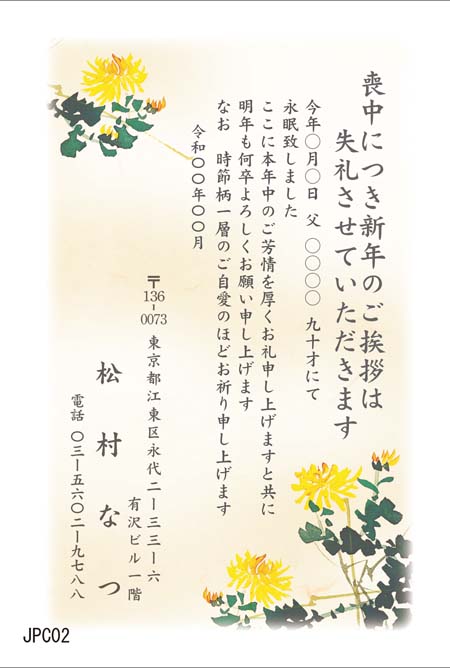 喪中につき新年のご挨拶は
失礼させていただきます
今年〇月〇日 父 〇〇〇〇 九十才にて
永眠致しました
ここに本年中のご芳情を厚くお礼申し上げますと共に
明年も何卒よろしくお願い申し上げます
なお 時節柄一層のご自愛のほどお祈り申し上げます
令和〇〇年〇〇月
〒136-0073
東京都江東区永代二ー三三ー六
有沢ビル一階
松村なつ
電話 〇三ー五六〇二ー九七八八
JPC02